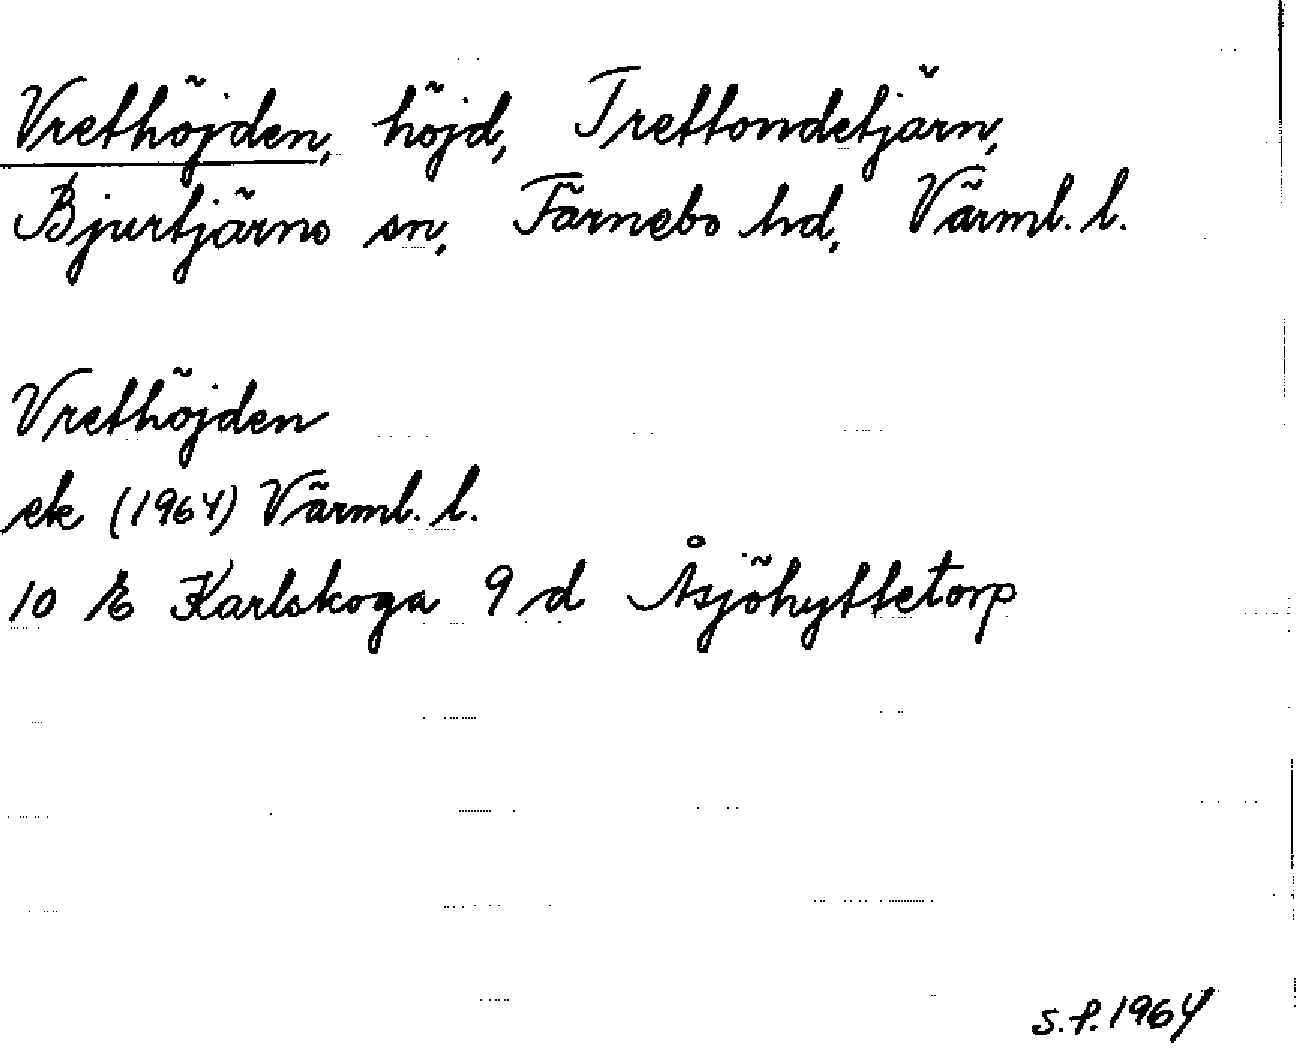 Vrethöjden, höjd, Trettondetjärn,
Bjurtjärns sn, Färnebo hd, Värml. l.
Vrethöjden
ek (1964) Värml. l.
10 E Karlskoga 9 d Åsjöhyttetorp
S.P. 1964